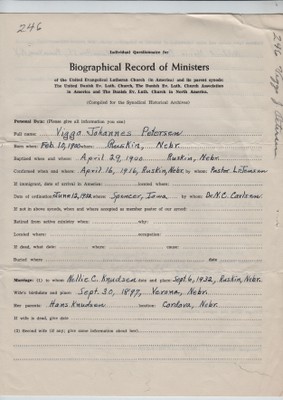 246
246 Viggo J. Petersen
Individual Questionnaire for
Biographical Record of Ministers
of the United Evangelical Lutheran Church (in America) and its parent synods:
The United Danish Ev. Luth. Church, The Danish Ev. Luth. Church Association
in America and The Danish Ev. Luth. Church in North America.
(Compiled for the Synodical Historical Archives)
Personal Item: (Please give all information you can)
Full name: Viggo Johannes Petersen
Date when: Feb. 12, 1900 where: Ruskin, Nebr.
Baptized when and where: April 29, 1900 Ruskin, Nebr.
Confirmed when and where: April 16, 1916, Ruskin, Nebr. by whom: Pastor L. Jensen
If immigrant, date of arrival in America: located where:
Date of ordination: June 12, 1932 where: Spencer, Iowa by whom: Dr. N.C. Carlsen
If not in above synods, when and where accepted as member pastor of our synod:
Retired from active ministry when: why:
Located where: occupation:
If dead, what date: where: cause:
Buried where date
Marriage: (1) to whom: Nellie C. Knudsen date and place Sept 6, 1932, Ruskin, Nebr.
Wife's birthdate and place: Sept. 30, 1897, Verona, Nebr.
Her parents: Hans Knudsen location: Cordova, Nebr.
If wife is dead, give date
(2) Second wife (if any, give same information about her)